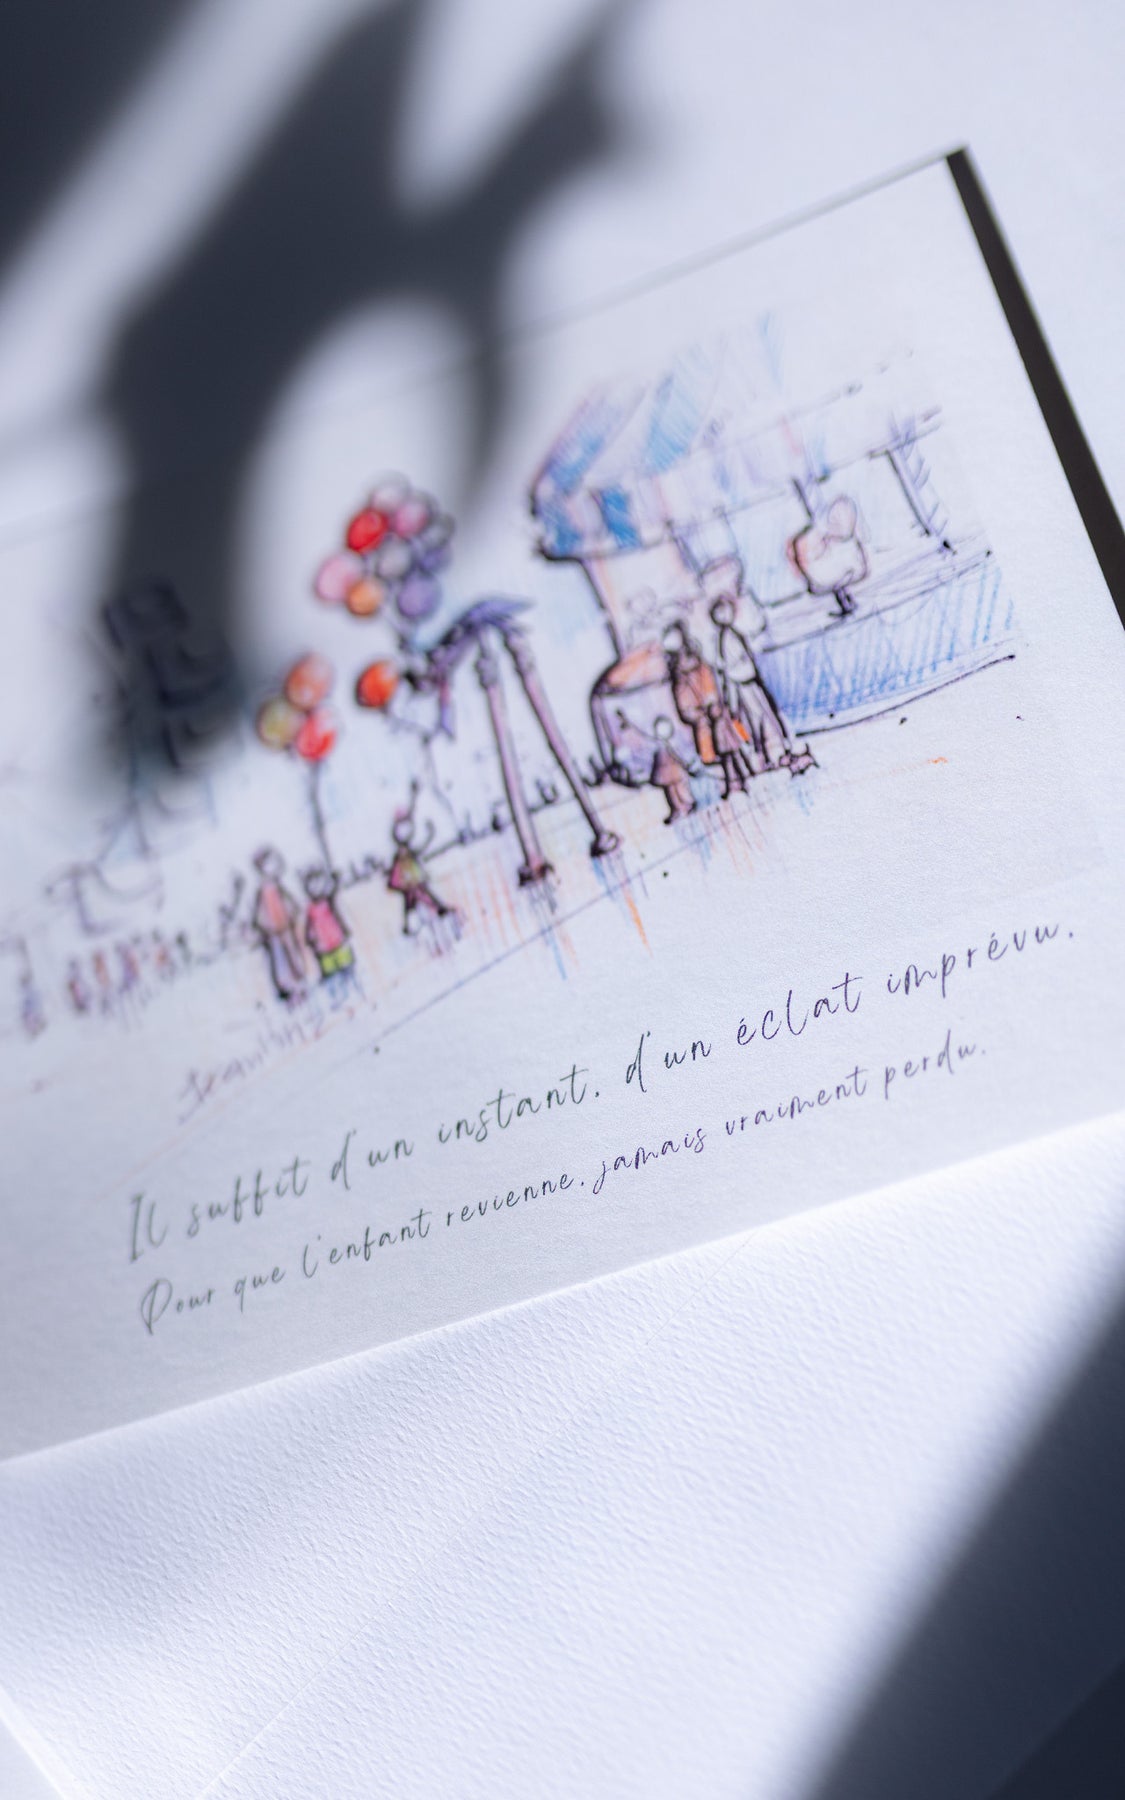 Il suffit d'un instant, d'un éclat imprévu,
Pour que l'enfant revienne, jamais vraiment perdu.